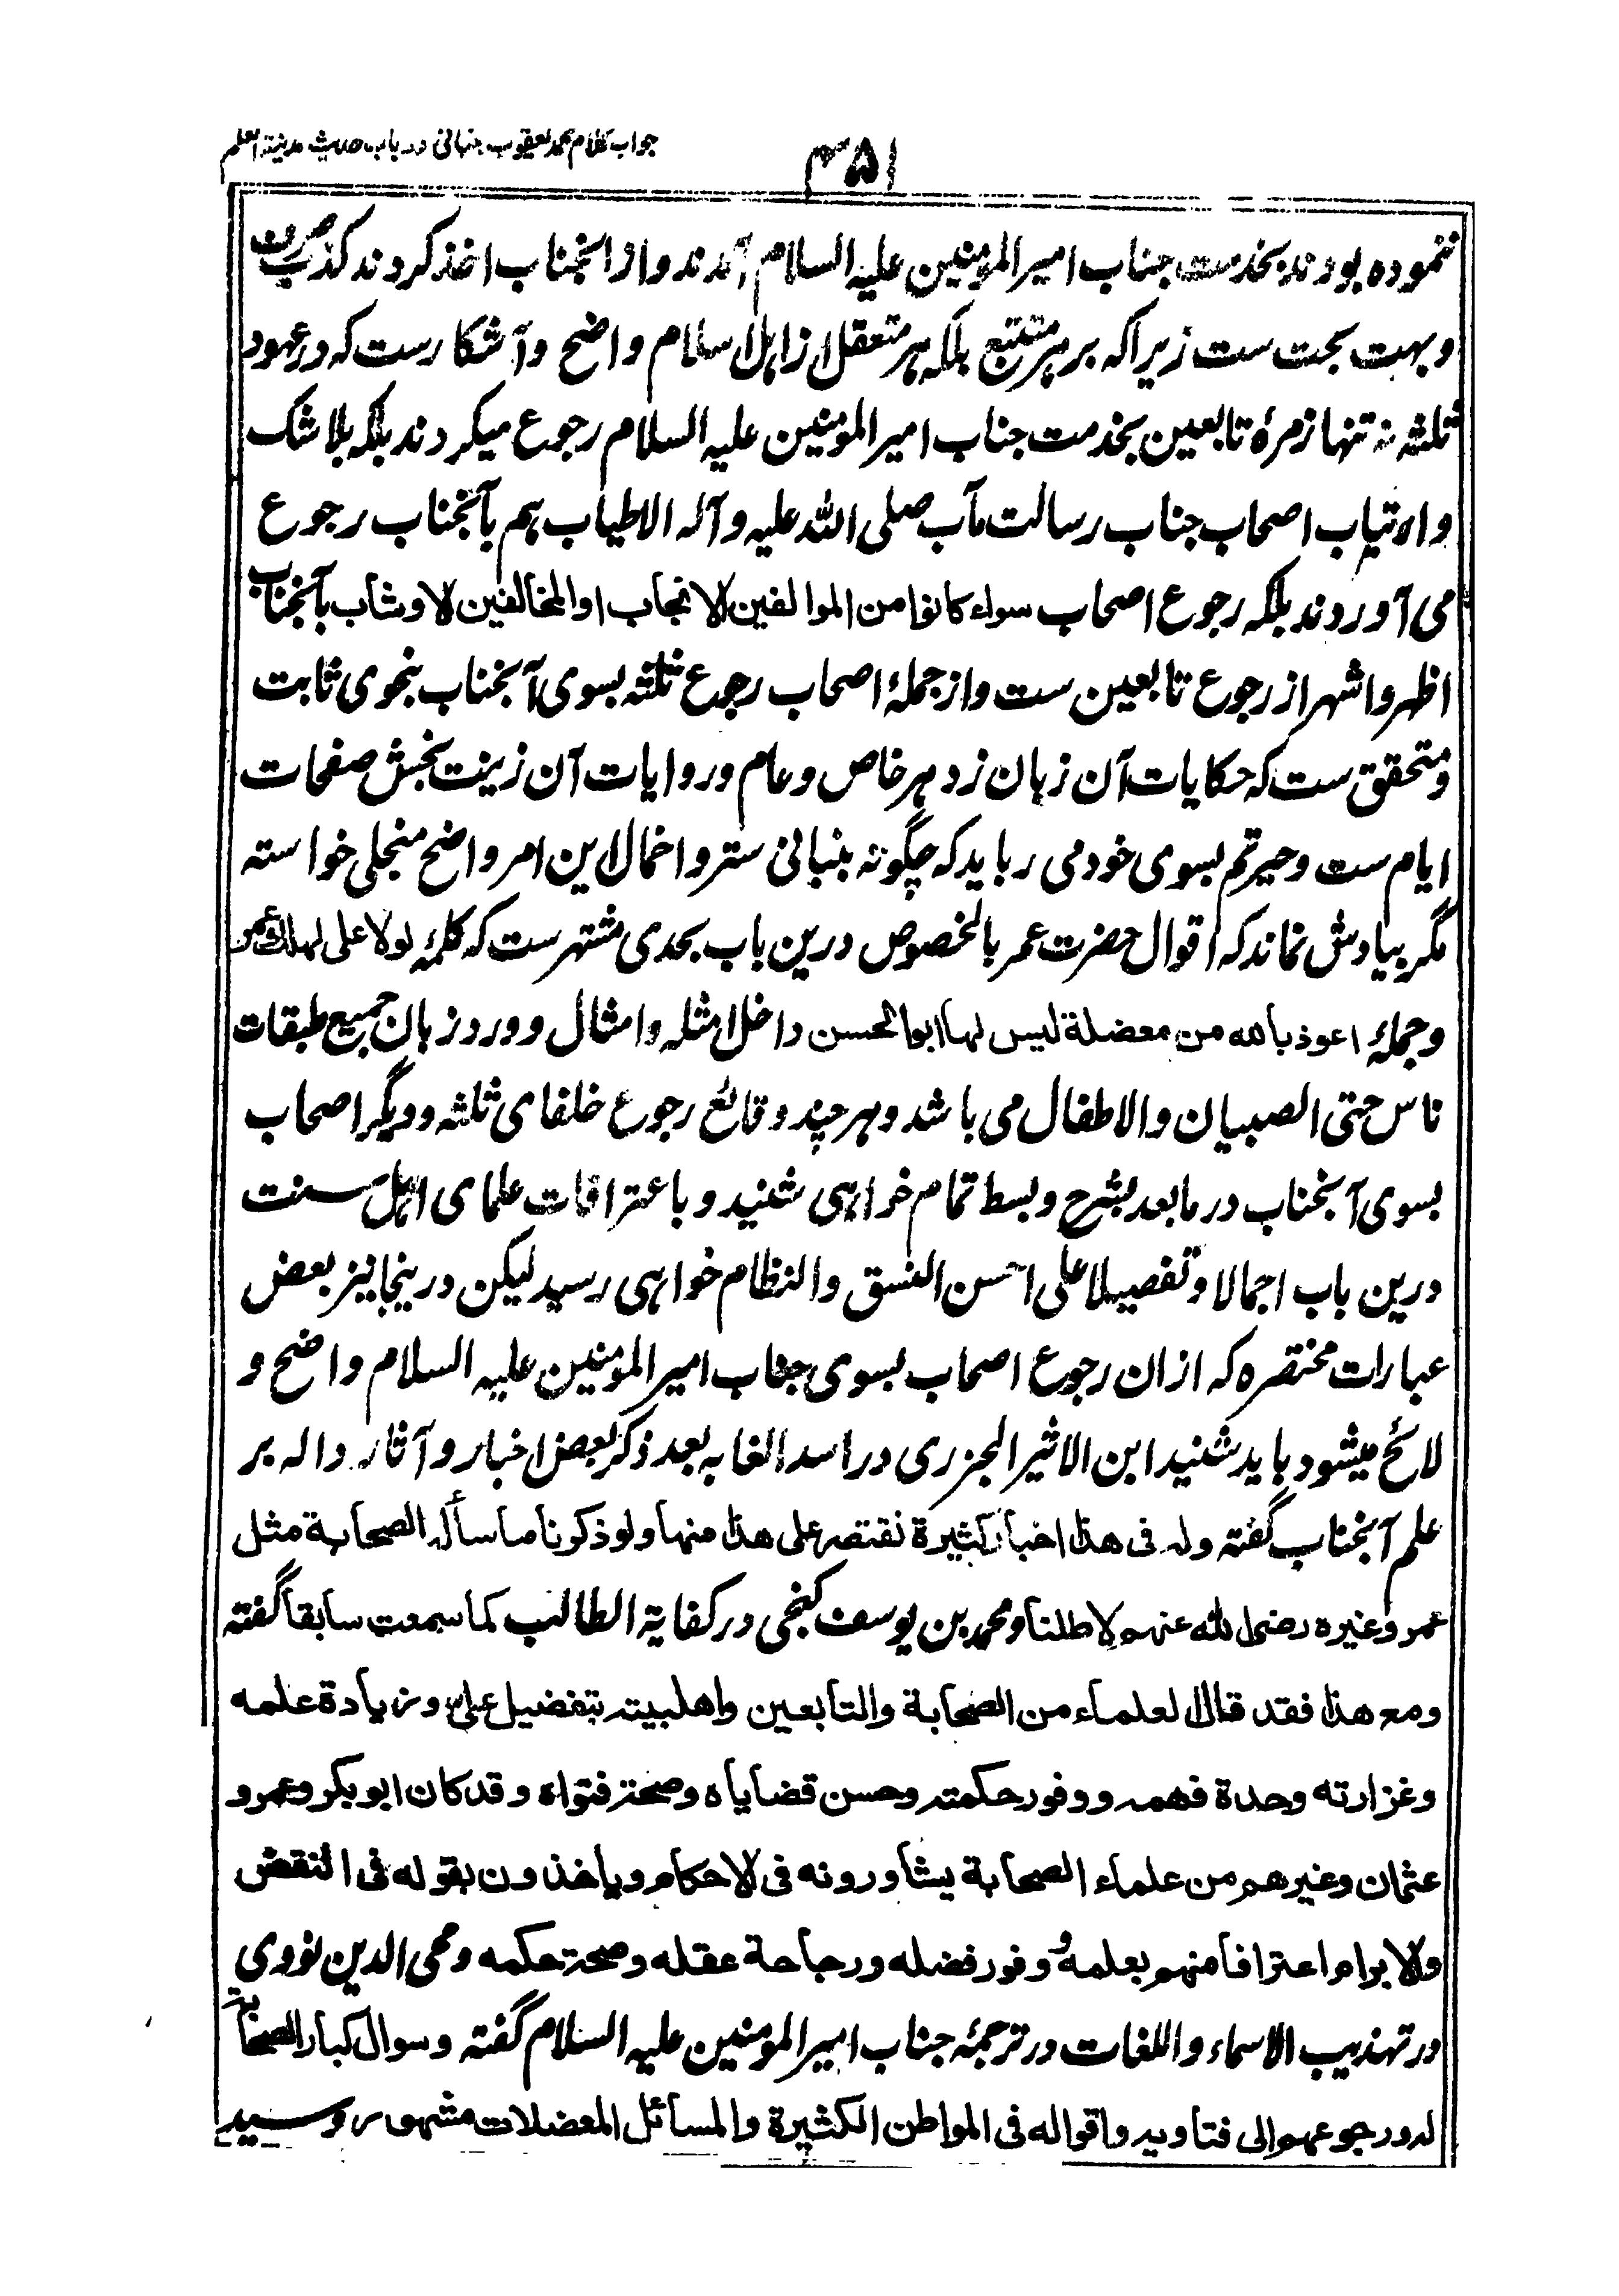 جواب کلام محمد یعقوب بنبانی در باب حدیث مدینة العلم
۳۵۱
ننموده بودند بخدمت جناب امیر المؤمنین علیه السلام آمدند و از آنجناب اخذ کردند کذب صرف
و بهت بحت ست زیرا که بر هر متتبع بلکه هر متعقل از اهل اسلام واضح و آشکار ست که در عهود
ثلثه نه تنها زمرۀ تابعین بخدمت جناب امیر المؤمنین علیه السلام رجوع میکردند بلکه بلا شک
و ارتیاب اصحاب جناب رسالت مآب صلی الله علیه و آله الاطیاب هم بآنجناب رجوع
می آوردند بلکه رجوع اصحاب سواء کانوا من الموالفین الانجاب او المخالفین الاوشاب بآنجناب
اظهر و اشهر از رجوع تابعین ست و از جملۀ اصحاب رجوع ثلثه بسوی آنجناب بنحوی ثابت
و متحقق ست که حکایات آن زبان زد هر خاص و عام و روایات آن زینت بخش صفحات
ایام ست و حیرتم بسوی خود می رباید که چگونه بنبانی ستر و اخمال این امر واضح منجلی خواسته
مگر بیادش نماند که اقوال حضرت عمر بالخصوص درین باب بحدی مشتهر ست که کلمۀ لولا علی لهلك عمر
و جملۀ اعوذ بالله من معضلة لیس لها ابو الحسن داخل امثله و امثال و ورد زبان جمیع طبقات
ناس حتی الصبیان و الاطفال می باشد و هر چند وقائع رجوع خلفای ثلثه و دیگر اصحاب
بسوی آنجناب در ما بعد بشرح و بسط تمام خواهی شنید و باعترافات علمای اهل سنت
درین باب اجمالا و تفصیلا علی احسن النسق و النظام خواهی رسید لیکن درینجا نیز بعض
عبارات مختصره که ازان رجوع اصحاب بسوی جناب امیر المؤمنین علیه السلام واضح و
لائح میشود باید شنید ابن الاثیر الجزری در اسد الغابه بعد ذکر بعض اخبار و آثار داله بر
علم آنجناب گفته وله فی هذا اخبار کثیرة نقتصر علی هذا منها ولو ذکرنا ما سأله الصحابة مثل
عمر وغیره رضی الله عنهم لاطلنا و محمد بن یوسف کنجی در کفایة الطالب کما سمعت سابقا گفته
ومع هذا فقد قال العلماء من الصحابة والتابعین واهل بیته بتفضیل علی وزیادة علمه
وغزارته وحدة فهمه ووفور حکمته وحسن قضایاه وصحة فتواه وقد کان ابو بکر وعمر و
عثمان وغیرهم من علماء الصحابة یشاورونه فی الاحکام ویاخذون بقوله فی النقض
والابرام اعترافا منهم بعلمه ووفور فضله ورجاحة عقله وصحة حکمه و محی الدین نووی
در تهذیب الاسماء و اللغات در ترجمۀ جناب امیر المؤمنین علیه السلام گفته وسوال کبار الصحابة
له ورجوعهم الی فتاویه واقواله فی المواطن الکثیرة والمسائل المعضلات مشهور و سید